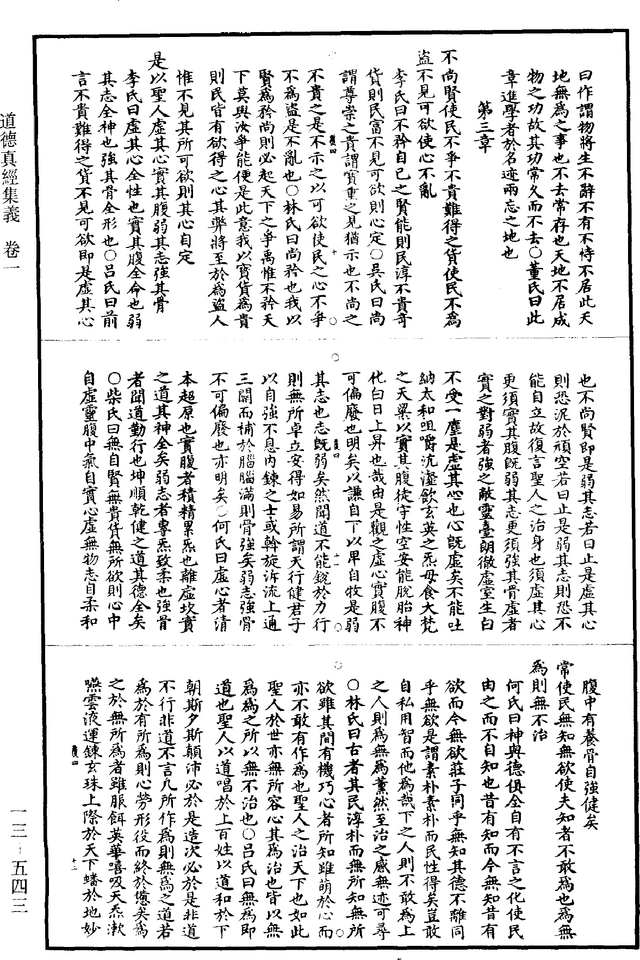 曰作謂物將生不辭不有不恃不居此天
地無為之事也不去常存也天地不居成
物之功故其功常久而不去○董氏曰此
章進學者於名迹兩忘之地也
第三章
不尚賢使民不爭不貴難得之貨使民不為
盜不見可欲使心不亂
李氏曰不矜自己之賢能則民淳不貴奇
貨則民富不見可欲則心定○吳氏曰尚
謂尊崇之貴謂寶重之見猶示也不尚之
不貴之是不示之以可欲使民之心不爭
不為盜是不亂也○林氏曰尚矜也我以
賢為矜尚則必起天下之爭禹惟不矜天
下莫與汝爭能便是此意我以寶貨為貴
則民皆有欲得之心其弊將至於為盜人
惟不見其所可欲則其心自定
是以聖人虛其心實其腹弱其志強其骨
李氏曰虛其心全性也實其腹全命也弱
其志全神也強其骨全形也○呂氏曰前
言不貴難得之貨不見可欲即是虛其心
也不尚賢即是弱其志若曰止是虛其心
則恐泥於頑空若曰止是弱其志則恐不
能自立故復言聖人之治身也須虛其心
更須實其腹既弱其志更須強其骨虛者
實之對弱者強之敵靈臺朗徹虛室生白
不受一塵是虛其心也心既虛矣不能吐
納太和咀嚼沆瀣飲玄英之炁母食大梵
之天粟以實其腹從守性空安能脫胎神
化白日上昇也哉由是觀之虛心實腹不
可偏廢也明矣以謙自下以卑自牧是弱
其志也志既弱矣然聞道不能銳於力行
則無所卓立安得如易所謂天行健君子
以自強不息內鍊之士或斡旋泝流上通
三關而補於腦腦滿則骨強矣弱志強骨
不可偏廢也亦明矣○何氏曰虛心者清
本超原也實腹者積精累炁也離虛坎實
之道其神全矣弱志者專炁致柔也強骨
者聞道勤行也坤順乾健之道其德全矣
○柴氏曰無自賢無貴貨無所欲則心中
自虛靈腹中氣自實心虛無物志自柔和
腹中有養骨自強健矣
常使民無知無欲使夫知者不敢為也為無
為則無不治
何氏曰神與德俱全自有不言之化使民
由之而不自知也昔有知而今無知昔有
欲而今無欲莊子同乎無知其德不離同
乎無欲是謂素朴素朴而民性得矣豈敢
自私用智而他為哉下之人則不敢為上
之人則為無為薰然至治之感無迹可尋
○林氏曰古者其民淳朴而無所知無所
欲雖其間有機巧心者所知雖萌於心而
亦不敢有作為也聖人之治天下也如此
聖人於世亦無所容心其為治也皆以無
為為之所以無不治也○呂氏曰無為即
道也聖人以道唱於上百姓以道和於下
朝斯夕斯顛沛必於是造次必於是非道
不行非道不言凡所作為則無為之道若
為於有所為則心勞形役而終於憊矣為
之於無所為者雖服餌英華嘻吸天炁漱
嚥雲液運鍊玄珠上際於天下蟠於地妙
道德真經集義　卷一
一三－五四三